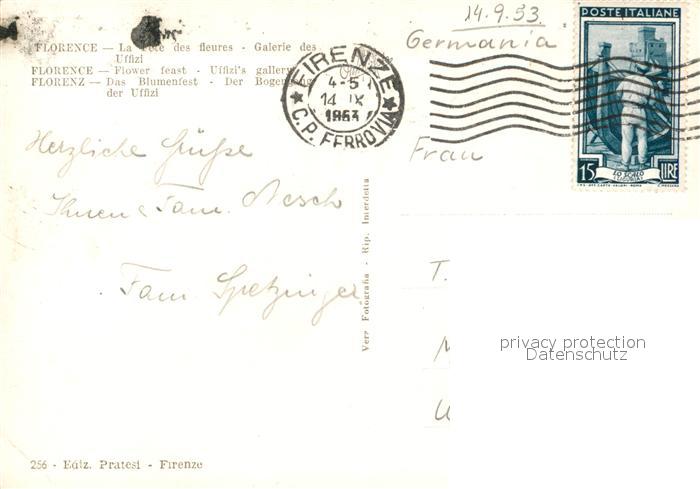 14.9.53
Germania
FLORENCE — La Fête des fleures - Galerie des
Uffizi
FLORENCE — Flower feast - Uffizi's gallery
FLORENZ — Das Blumenfest - Der Bogengang
der Uffizi
FIRENZE
4-5
14 IX
1953
C.P. FERROVIA
POSTE ITALIANE
15 LIRE
LO SCALO
(LIGURIA)
Herzliche Grüße
Ihnen & Fam. Resch
Fam Spetzinger
Frau
T.
M
U
Vera Fotografia - Rip. Interdetta
privacy protection
Datenschutz
256 - Ediz. Pratesi - Firenze